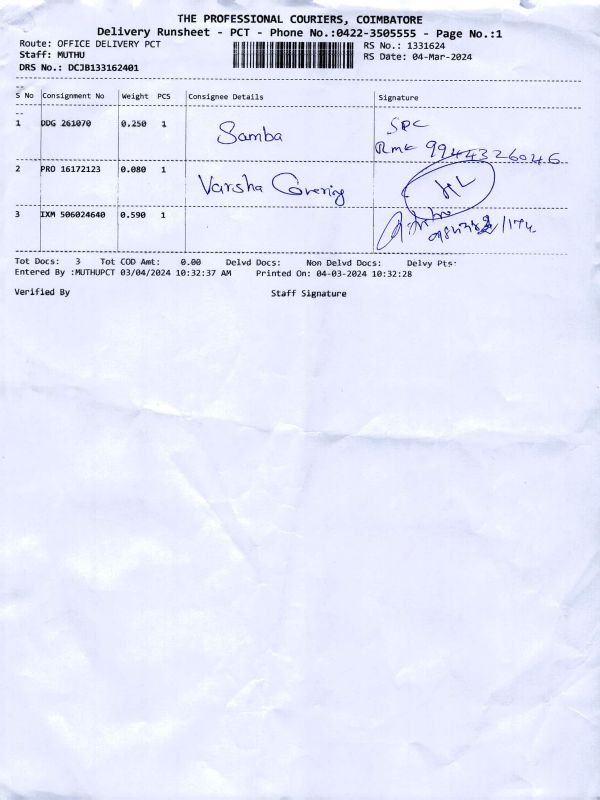 THE PROFESSIONAL COURIERS, COIMBATORE
Delivery Runsheet - PCT - Phone No.:0422-3505555 - Page No.:1
Route: OFFICE DELIVERY PCT RS No.: 1331624
Staff: MUTHU RS Date: 04-Mar-2024
DRS No.: DCJB133162401
S No Consignment No Weight PCS Consignee Details Signature
1 DDG 261070 0.250 1 Samba SRC
9944326046
2 PRO 16172123 0.080 1 Varsha Covering HL
3 IXM 506024640 0.590 1
Tot Docs: 3 Tot COD Amt: 0.00 Delvd Docs: Non Delvd Docs: Delvy Pts:
Entered By :MUTHUPCT 03/04/2024 10:32:37 AM Printed On: 04-03-2024 10:32:28
Verified By Staff Signature